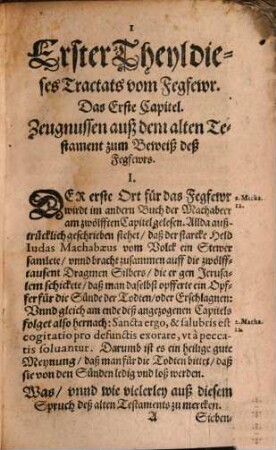 1
Erster Theyl die-
ses Tractats vom Fegfewr.
Das Erste Capitel.
Zeugnussen auß dem alten Te-
stament zum Beweiß deß
Fegfewrs.
I.
DER erste Ort für das Fegfewr
wirdt im andern Buch der Machabeer
am zwölfften Capitel gelesen. Allda auß-
trücklich geschrieben stehet / daß der starcke Held
Iudas Machabæus vom Volck ein Stewer
samlete / vnnd bracht zusammen auff die zwölff-
tausent Dragmen Silbers / die er gen Jerusa-
lem schickete / daß man daselbst opfferte ein Opf-
fer für die Sünde der Todten / oder Erschlagnen:
Vnnd gleich am ende deß angezogenen Capitels
folget also hernach: Sancta ergo, & salubris est
cogitatio pro defunctis exorare, vt à pecca-
tis soluantur. Darumb ist es ein heilige gute
Meynung / daß man für die Todten bittet / daß
sie von den Sünden ledig vnd loß werden.
Was / vnnd wie vielerley auß diesem
Spruch deß alten Testaments zu mercken.
A Sieben-
2. Macha.
12.
2. Macha.
12.